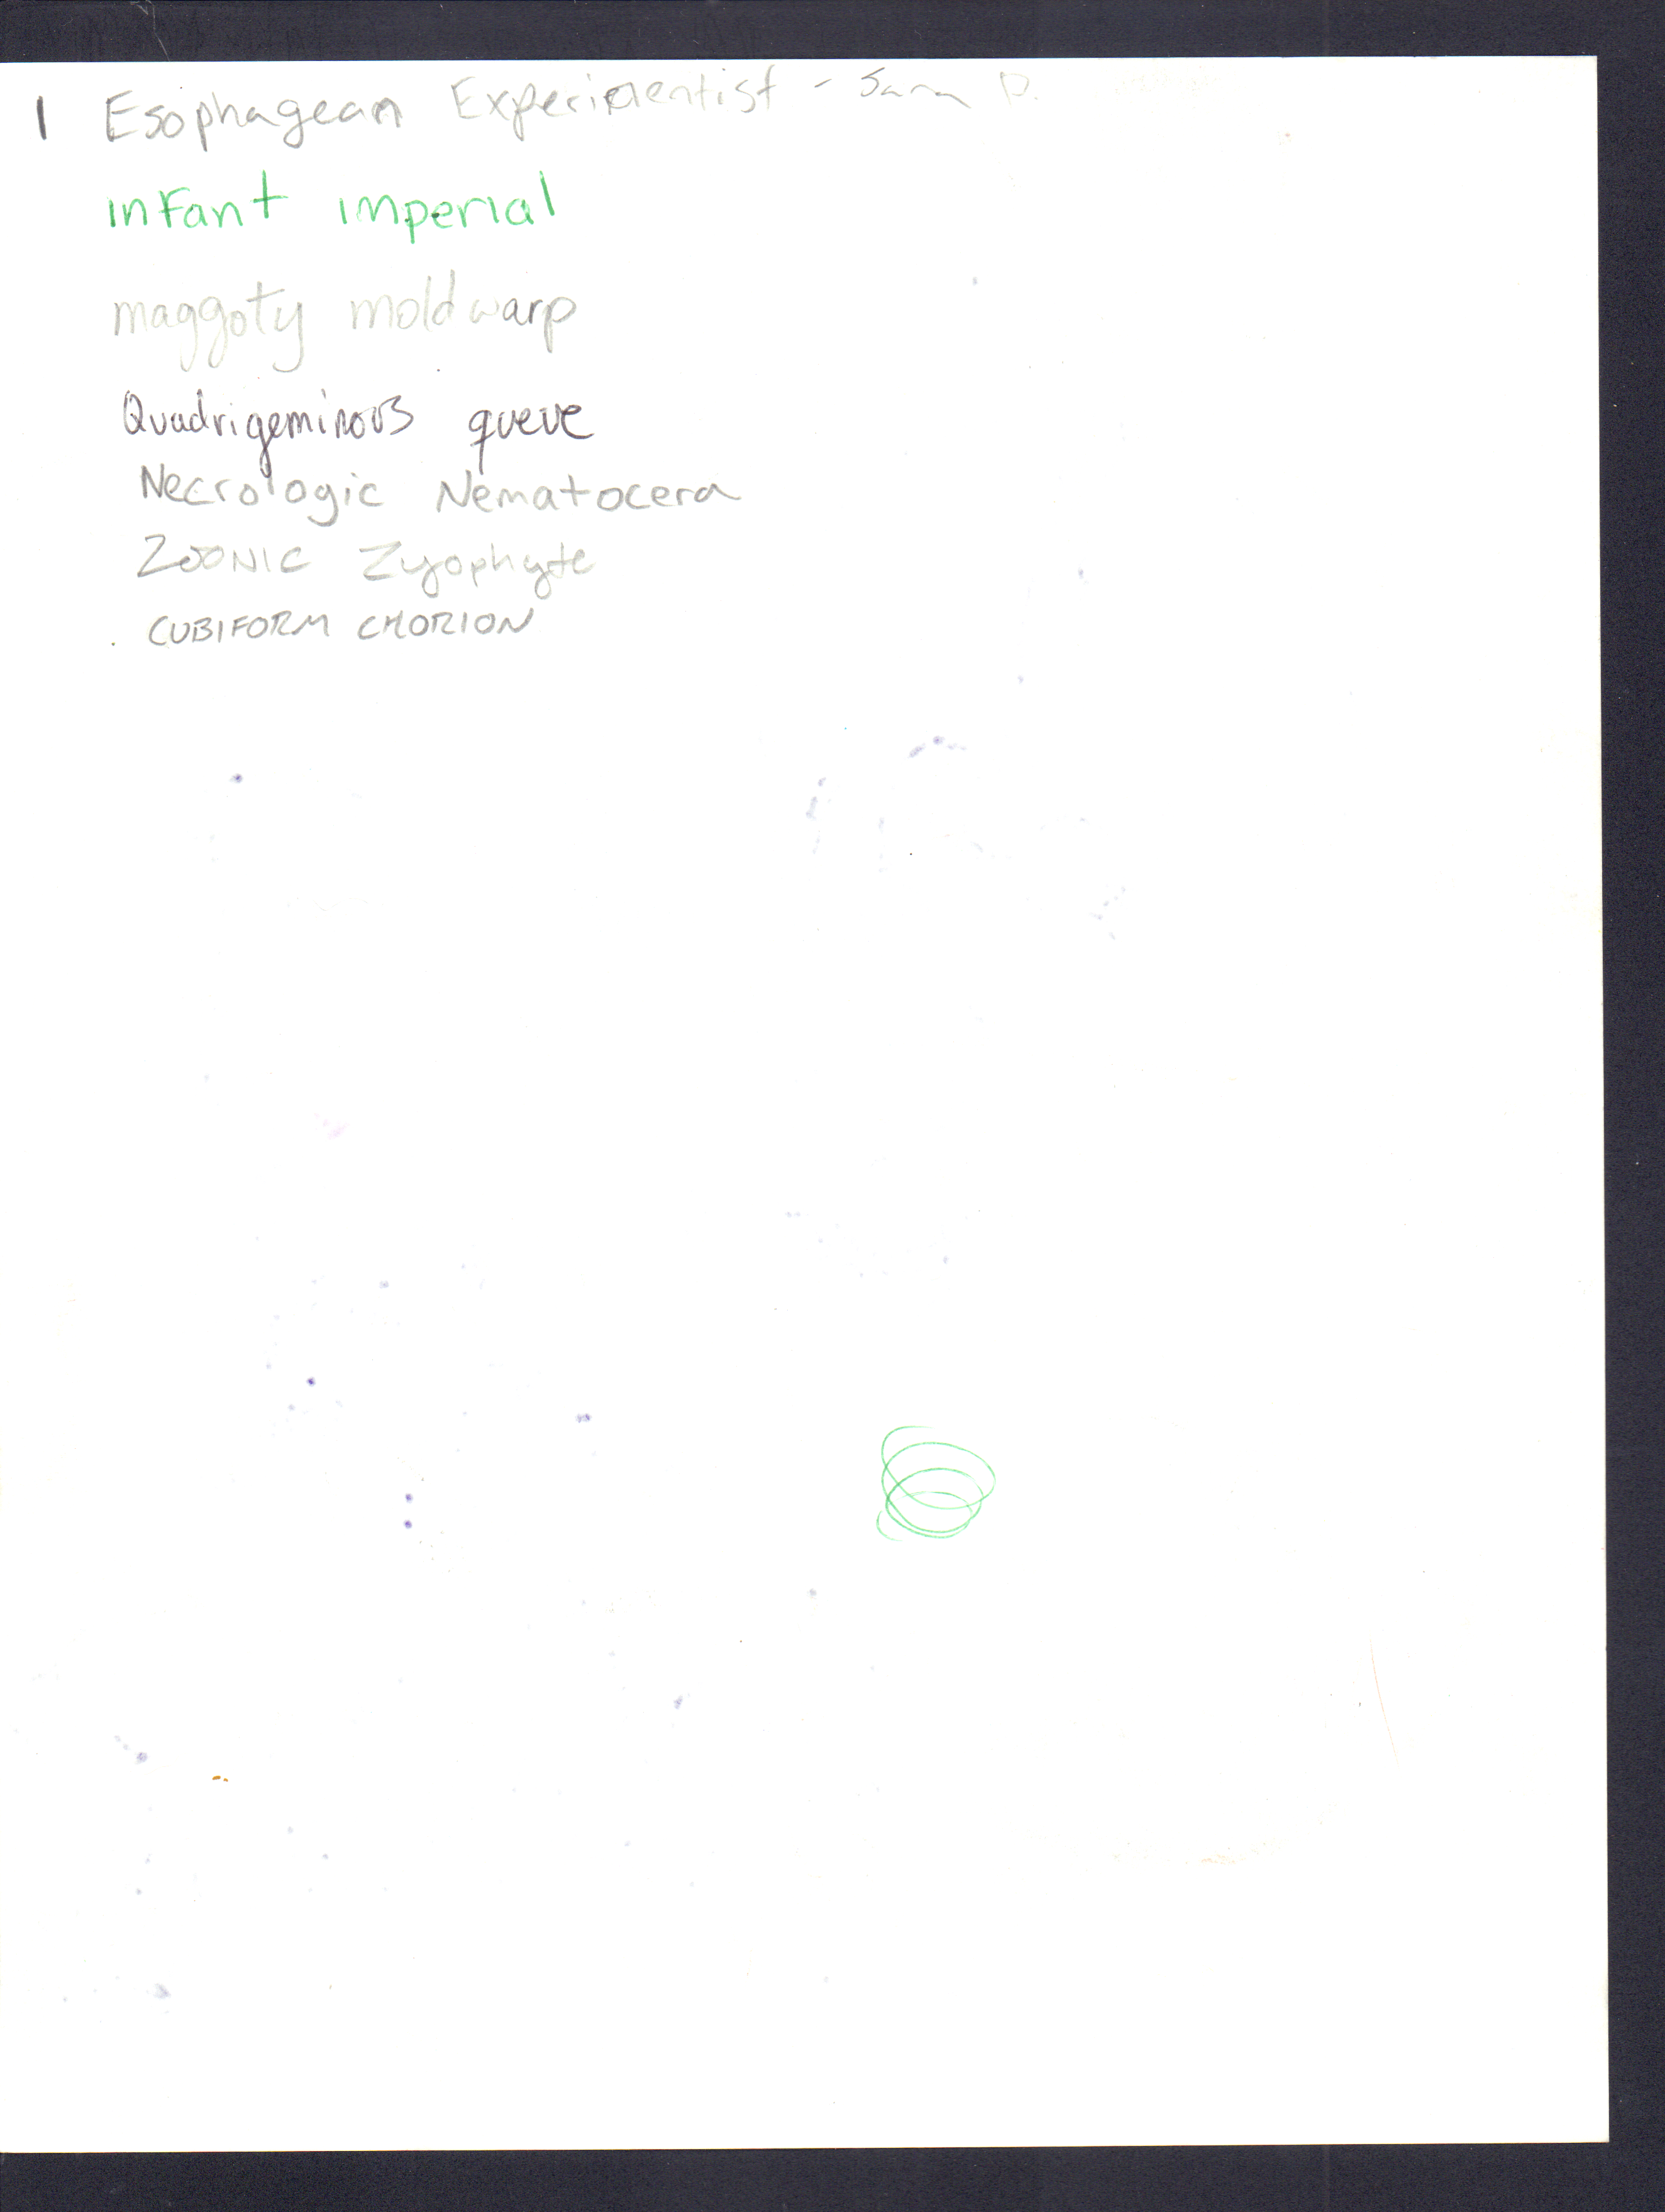 1 Esophagean Experimentist - Sara D.
infant imperial
maggoty moldwarp
Quadrigeminous queue
Necrologic Nematocera
Zoonic Zyophyte
. CUBIFORM CHORION